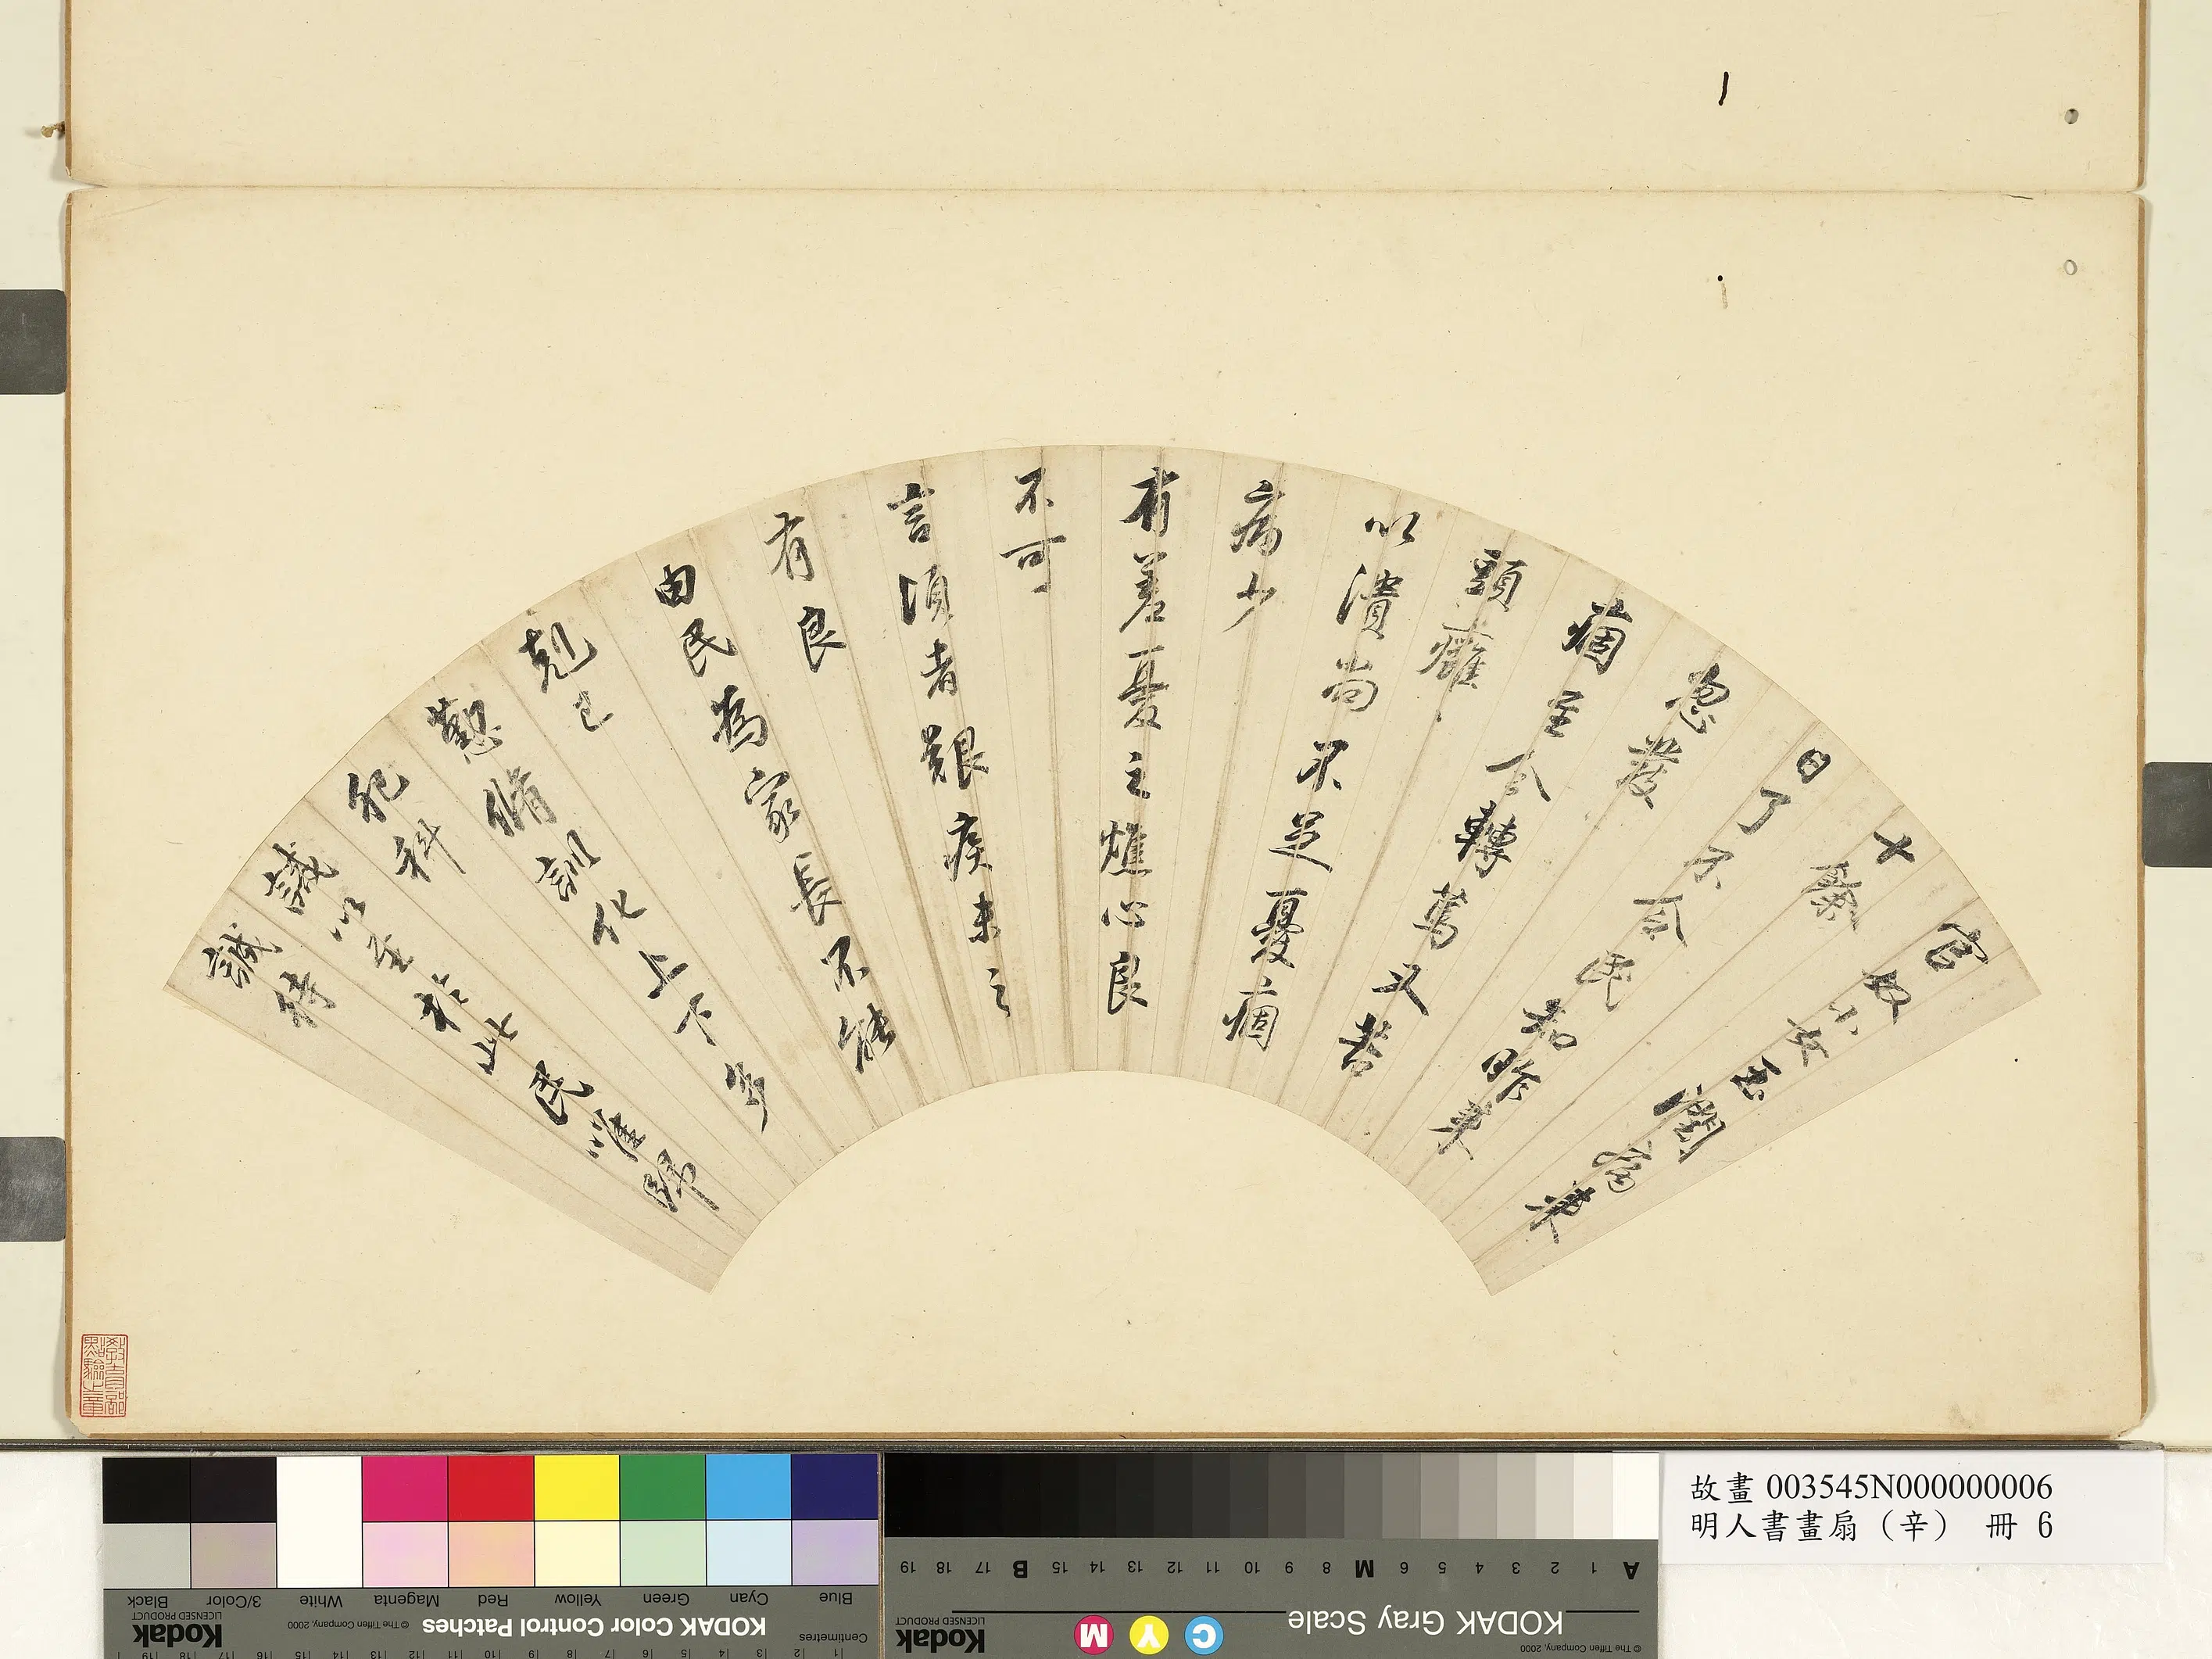 官奴小女玉潤病來
十餘
日了不令民知昨來
忽發
痼至今轉篤又苦
頭癰
以潰尚不足憂痼
病少
有差憂之燋心良
不可
言須者艱疾未之
有良
由民為家長不能
剋己
懃脩訓化上下多
犯科
誡以至於此民唯歸
誠待
教育部點驗之章
故畫 003545N000000006
明人書畫扇（辛） 冊 6
KODAK Color Control Patches
© The Tiffen Company, 2000
Kodak
LICENSED PRODUCT
Centimetres
Blue Cyan Green Yellow Red Magenta White 3/Color Black
KODAK Gray Scale
© The Tiffen Company, 2000
C Y M
Kodak
LICENSED PRODUCT
A 1 2 3 4 5 6 M 8 9 10 11 12 13 14 15 B 17 18 19